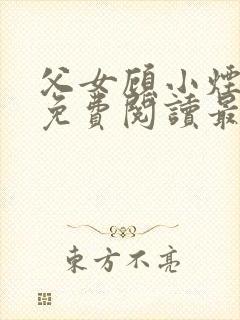 父女顾小烟
免費閱讀最
東方不亮